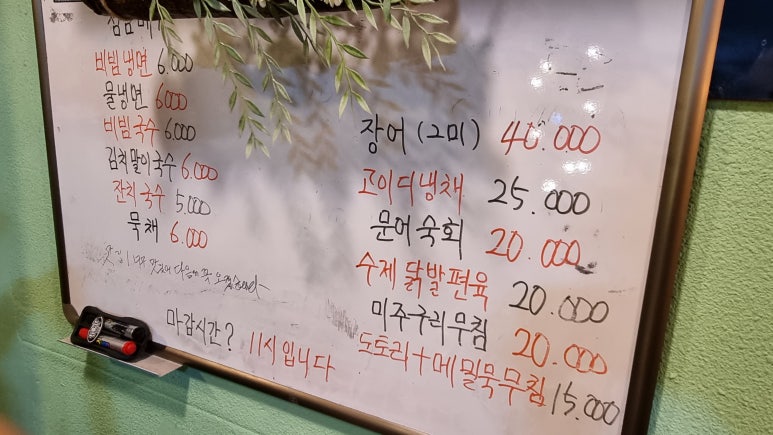 비빔냉면 6.000
물냉면 6000
비빔국수 6.000
김치말이국수 6.000
잔치국수 5.000
묵채 6.000
마감시간? 11시입니다
장어 (2미) 40.000
고이디냉채 25.000
문어숙회 20.000
수제 닭발편육 20.000
미주구리무침 20.000
도토리+메밀묵무침 15.000